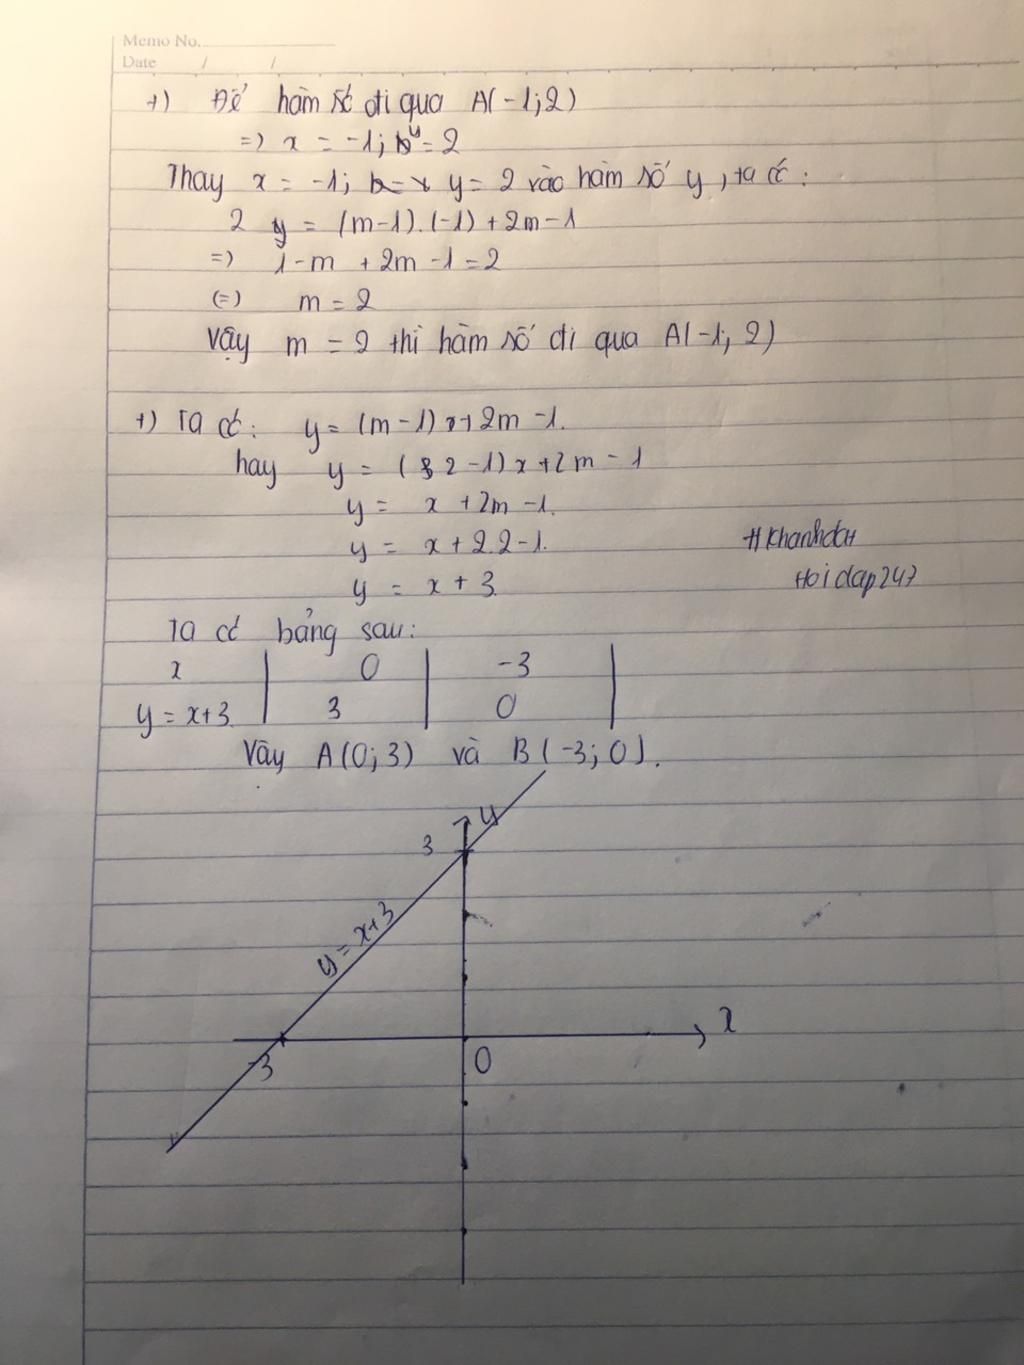 Memo No.
Date / /
+) Để hàm số đi qua A(-1;2)
=) x = -1; y = 2
Thay x = -1; y = 2 vào hàm số y, ta có:
2 = (m-1).(-1) + 2m - 1
=) 1 - m + 2m - 1 = 2
(=) m = 2
Vậy m = 2 thì hàm số đi qua A(-1; 2)
+) Ta có: y = (m-1) x + 2m - 1.
hay y = (2-1) x + 2m - 1
y = x + 2m - 1.
y = x + 2.2 - 1.
y = x + 3.
#Khanhdat
Hoidap247
Ta có bảng sau:
x | 0 | -3 |
y = x+3 | 3 | 0 |
Vậy A(0; 3) và B(-3; 0).
y
3
y = x+3
x
-3
0